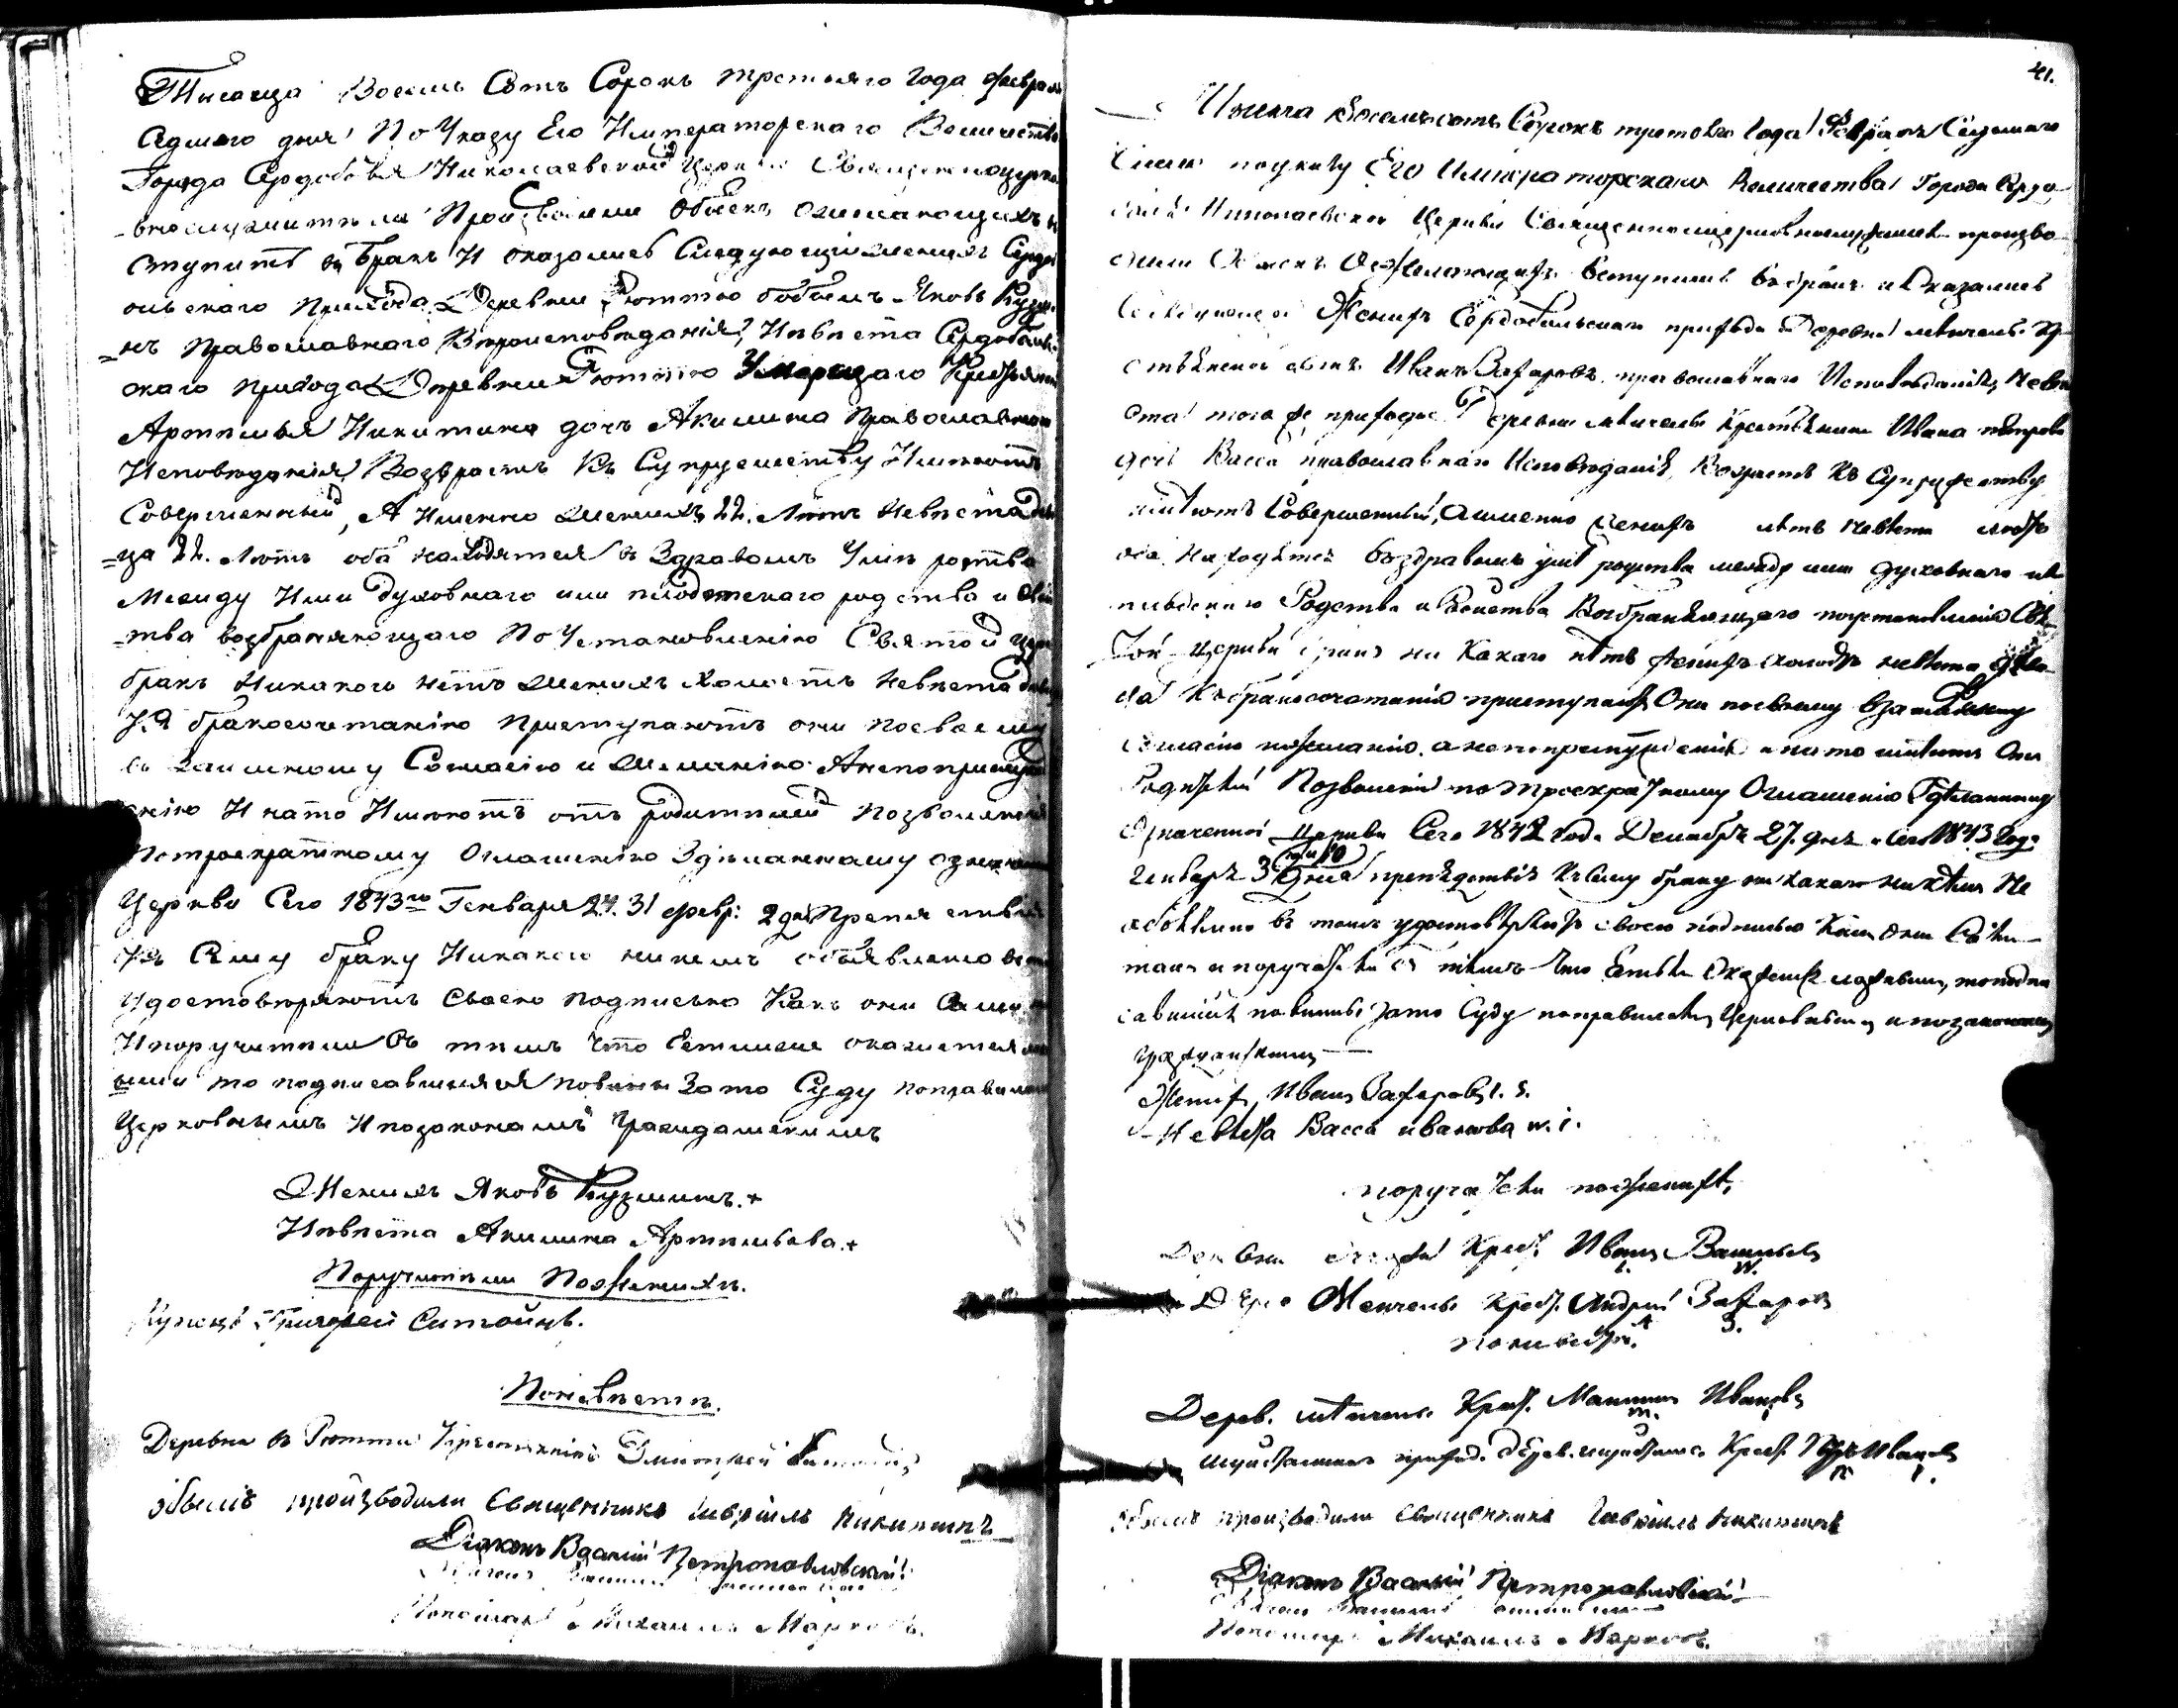 Тысяща Восемь Сотъ Сорокъ третьяго года февраля
Седмаго дня По Указу Его Императорскаго Величества
Города Сердоболя Николаевской Церкви Священноцерко
-внослужители Произвовили обыскъ о желающихъ в
ступить въ бракъ И оказалось Следующіи женихъ Сердоб
ольскаго Прихода Деревни Рюттю бобыль Яковъ Кузми
=нъ Православнаго Вероисповеданія, Невеста Сердоболь
скаго прихода Деревни Рюттю Умершаго Крестьянина
Артемья Никитина дочь Акилина Православнаго
Исповеданія Возврастъ Къ Супружеству Имеютъ
Совершенный, А Именно женихъ 22. Летъ Невеста деви
=ца 22. Летъ оба находятся въ Здравомъ Уме
Между Ими духовнаго или плодскаго родства и свой
=тва возбраняющаго По Установленію Святой Церкви
бракъ Никакого нетъ женихъ холостъ невеста девица
Къ бракосочетанію Приступаютъ они по своему
взаимному Согласію и желанію А не по принужд
енію И на то Имеютъ отъ родителей позволеніе
По троекратному Оглашенію Зделанному означенной
Церкви Сего 1843го Генваря 24. 31 февр: 2 дня Препятствія
Къ Сему браку Никакого никемъ объявлено
Удостоверяютъ Своею подписью Какъ они Сами
И поручители Въ темъ что Естьли окажется
то подписавшияся повины За то Суду по правиламъ
Церковнымъ И по законамъ Гражданскимъ
Женихъ Яковъ Кузминъ. +
Невеста Акилина Артемьева. +
Поручители По Женихе.
Купецъ Григорей Ситойнъ.
По невесте.
Деревни Рютти Крестьянинъ Дмитрей
обыскъ производили Священникъ Гавріилъ Никитинъ
Діаконъ Василій Петропавловскій
Пономарь Михаилъ Марковъ.
41.
Тысяча восемьсотъ Сорокъ третьяго года Февраля Седьмаго
по указу Его Императорскаго Величества Города Сердо
Николаевской Церкви Священноцерковнослужители произво
дили Обыскъ О желающихъ вступить въ бракъ и Оказалось
Следующее Женихъ Сердобольскаго прихода Деревни Кре
стьянской сынъ Иванъ Захаровъ православнаго Исповеданія, Неве
ста того же прихода Деревни Крестьянина Ивана Петрова
дочь Васса православнаго Исповеданія, Возрастъ Къ Супружеству
имеютъ Совершенный, а именно женихъ летъ невеста летъ
оба находятся въ здравомъ уме родства между ими духовнаго или
плодскаго Родства и свойства Возбраняющаго по установленію Свя
той Церкви бракъ ни Какаго нетъ женихъ холостъ невеста деви
ца Къ бракосочетанію приступаютъ Они по своему взаимному
согласію и желанію, а не по принужденію и на то имеютъ Они
Родителей Позволеніе по троекратному Оглашенію Зделанному
Означенной Церкви Сего 1842 года Декабря 27. дня и сего 1843 года
Генваря 3 и 10 дня препятствія Къ сему браку ни какаго никемъ Не
объявлено въ томъ удостоверяютъ своею подписью Какъ Они Сами
такъ и поручатели въ темъ что Естьли Окажется ложными, то подпи
савшіися повинны за то Суду по правиламъ Церковнымъ и по законамъ
Гражданскимъ
Женихъ Иванъ Захаровъ І. З.
Невеста Васса иванова w. i.
поручатели по женихе,
Дер Крест. Иванъ Васильевъ
Дере Крест. Андрей Захаровъ
А З.
По невесте.
Дерев. Крест. Мартинъ Ивановъ
m. i
прихода дерев. Крест. Петръ Ивановъ
П i.
обыскъ производили Священникъ Гавріилъ Никитинъ
Діаконъ Василій Петропавловскій
Пономарь Михаилъ Марковъ.